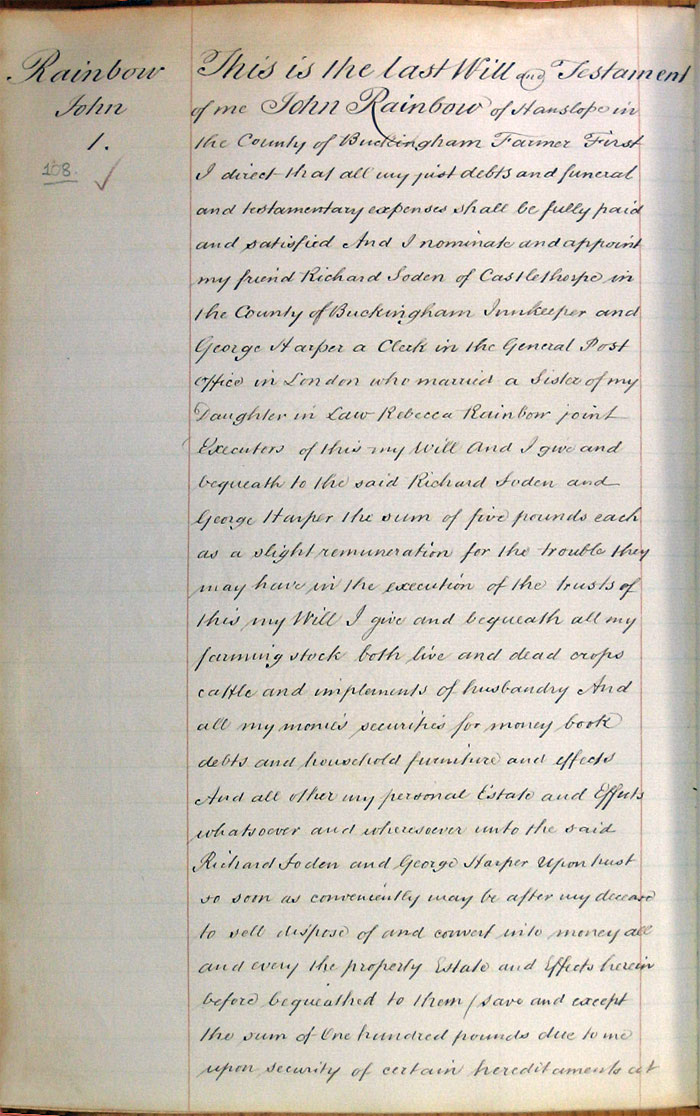 Rainbow
John
1.
108.
This is the last Will and Testament
of me John Rainbow of Hanslope in
the County of Buckingham Farmer First
I direct that all my just debts and funeral
and testamentary expenses shall be fully paid
and satisfied And I nominate and appoint
my friend Richard Soden of Castlethorpe in
the County of Buckingham Innkeeper and
George Harper a Clerk in the General Post
Office in London who married a Sister of my
Daughter in Law Rebecca Rainbow joint
Executors of this my Will And I give and
bequeath to the said Richard Soden and
George Harper the sum of five pounds each
as a slight remuneration for the trouble they
may have in the execution of the trusts of
this my Will I give and bequeath all my
farming stock both live and dead crops
cattle and implements of husbandry And
all my monies securities for money book
debts and household furniture and effects
And all other my personal Estate and Effects
whatsoever and wheresoever unto the said
Richard Soden and George Harper Upon trust
so soon as conveniently may be after my decease
to sell dispose of and convert into money all
and every the property Estate and Effects herein
before bequeathed to them (save and except
the sum of One hundred pounds due to me
upon security of certain hereditaments at